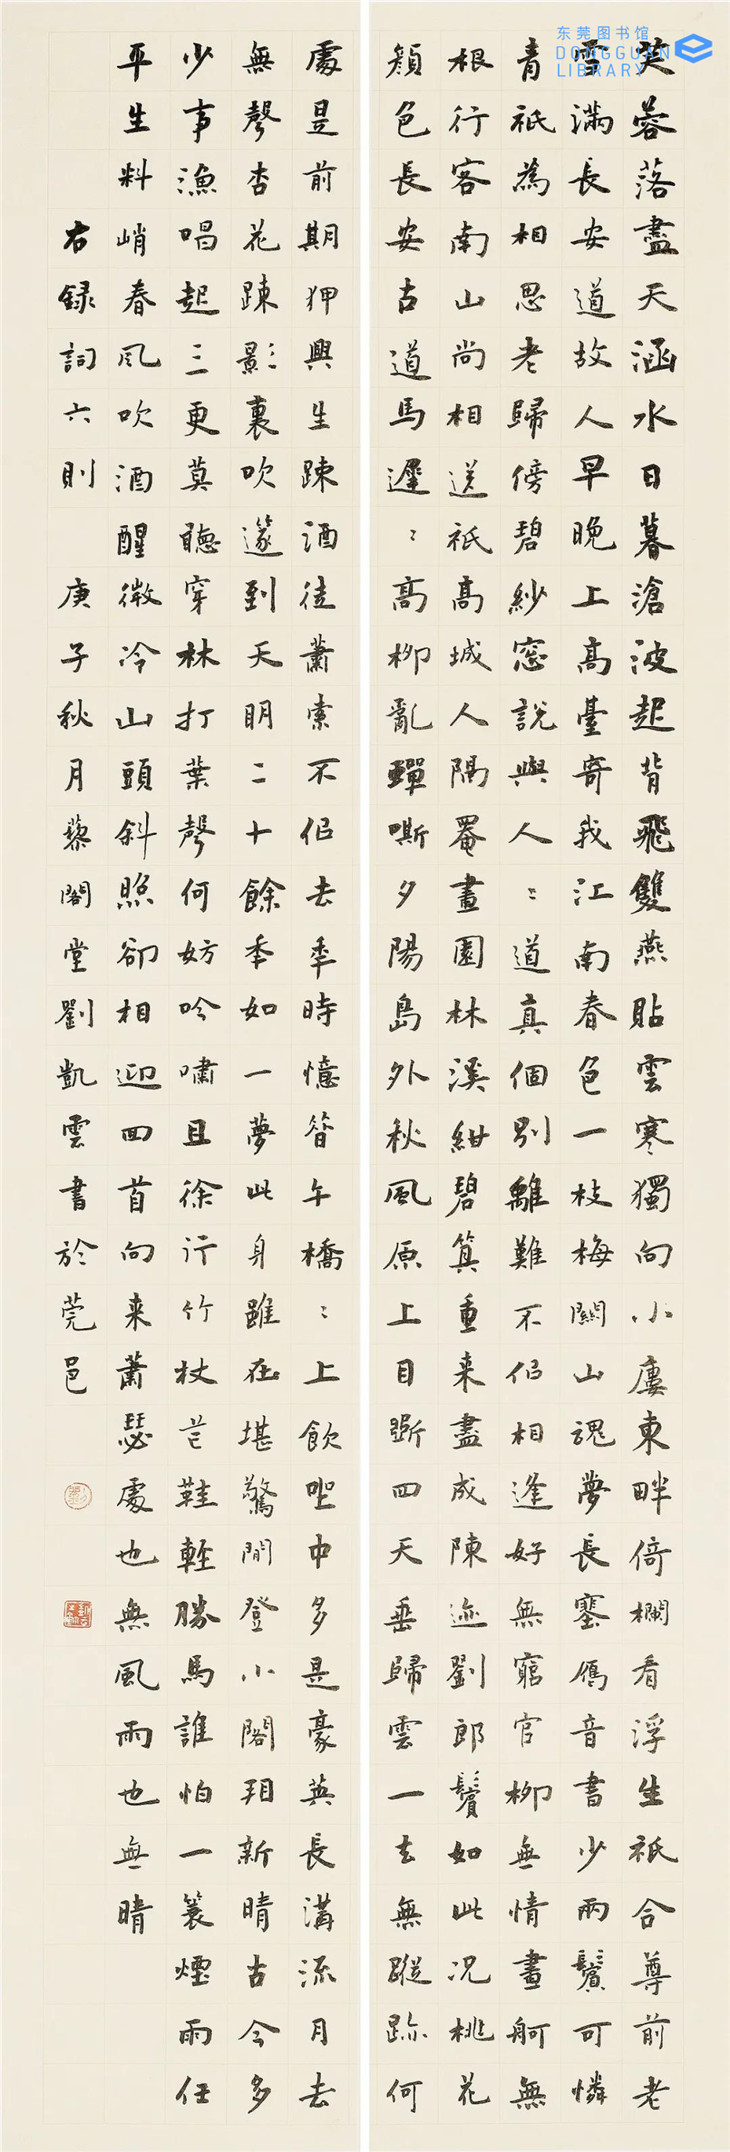 东莞图书馆
DONGGUAN
LIBRARY
芙蓉落盡天涵水日暮滄波起背飛雙燕貼雲寒獨向小廔東畔倚欄看浮生祇合尊前老
雪滿長安道故人早晚上高臺寄我江南春色一枝梅關山魂夢長塞雁音書少兩鬢可憐
青祇為相思老歸傍碧紗窓說與人〻道真個別離難不佀相逢好無窮官柳無情畫舸無
根行客南山尚相送祇高城人隔罨畫園林溪紺碧算重来盡成陳迹劉郎鬢如此況桃花
顏色長安古道馬遲〻高柳亂蟬嘶夕陽島外秋風原上目斷四天垂歸雲一去無蹤跡何
處是前期狎興生踈酒徒蕭索不佀去年時憶昔午橋〻上飲坐中多是豪英長溝流月去
無聲杏花踈影裏吹篴到天明二十餘年如一夢此身雖在堪驚閒登小閣新晴古今多
少事漁唱起三更莫聽穿林打葉聲何妨吟嘯且徐行竹杖芒鞋輕勝馬誰怕一簑煙雨任
平生料峭春風吹酒醒微冷山頭斜照卻相迎回首向来蕭瑟處也無風雨也無晴
右録詞六則 庚子秋月藜閣堂劉凱雲書於莞邑